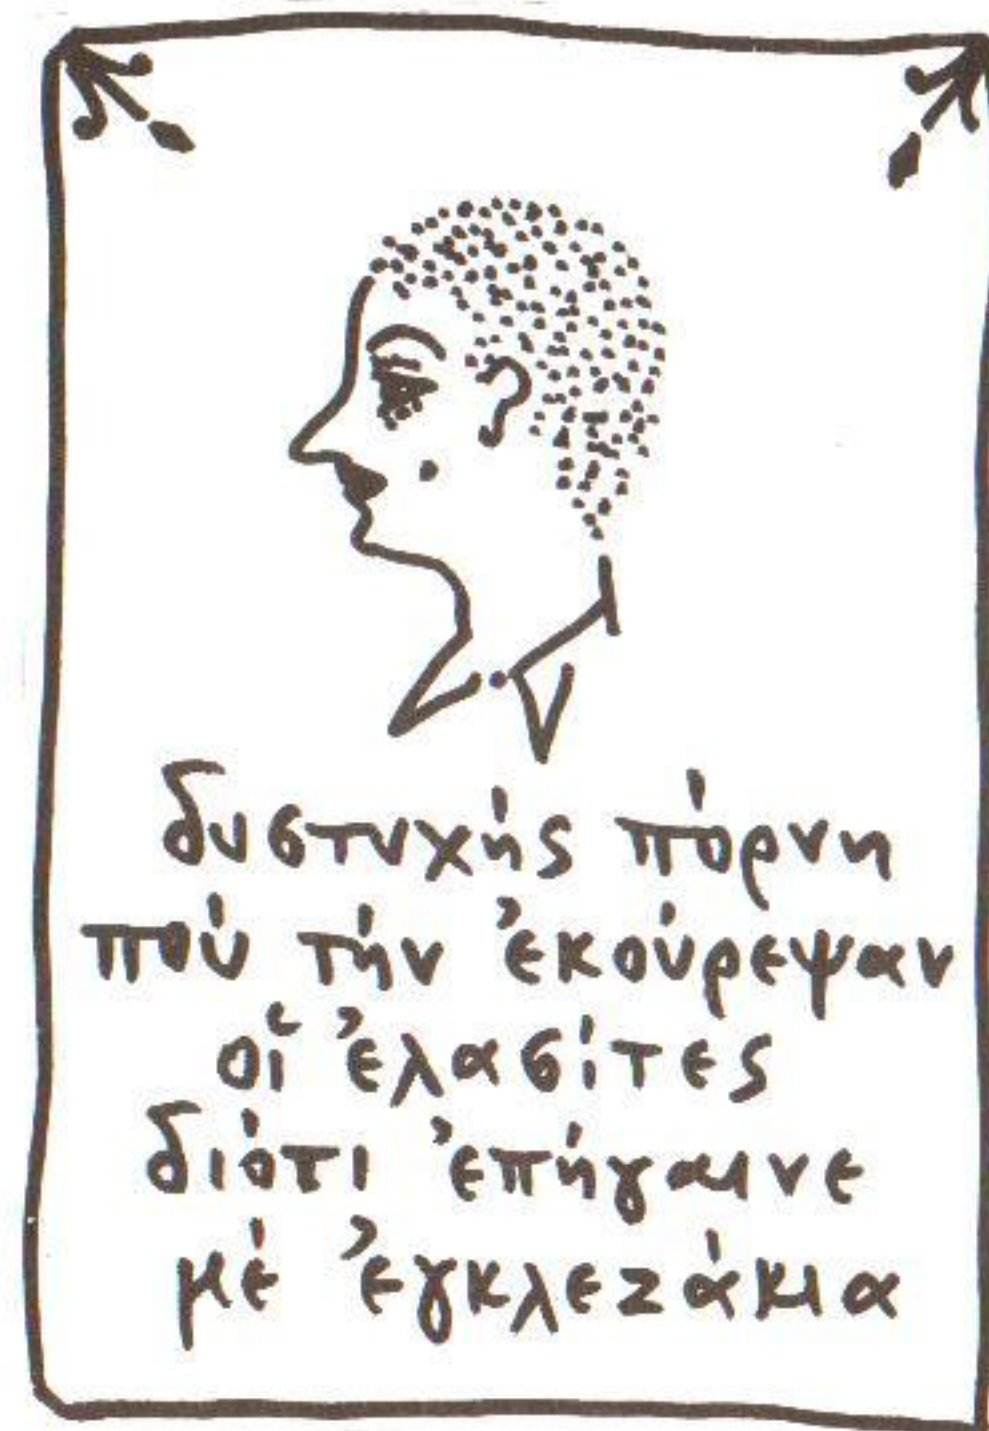 δυστυχής πόρνη
πού τήν ἐκούρεψαν
οἱ ἐλασίτες
διότι ἐπήγαινε
μέ ἐγκλεζάκια